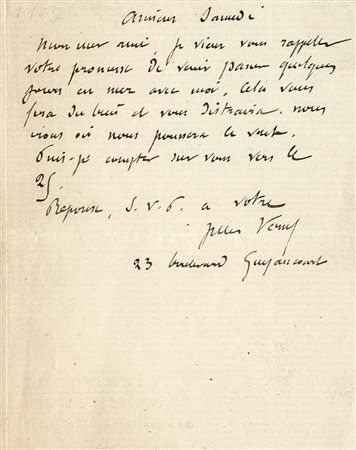 Amiens Samedi
Mon cher ami, je viens vous rappeller
votre promesse de venir passer quelques
jours en mer avec moi. Cela vous
fera du bien et vous distraira. nous
irons où nous poussera le vent.
Puis-je compter sur vous vers le
25.
Réponse, S.V.P. a votre
Jules Verne
23 boulevard Guyancourt